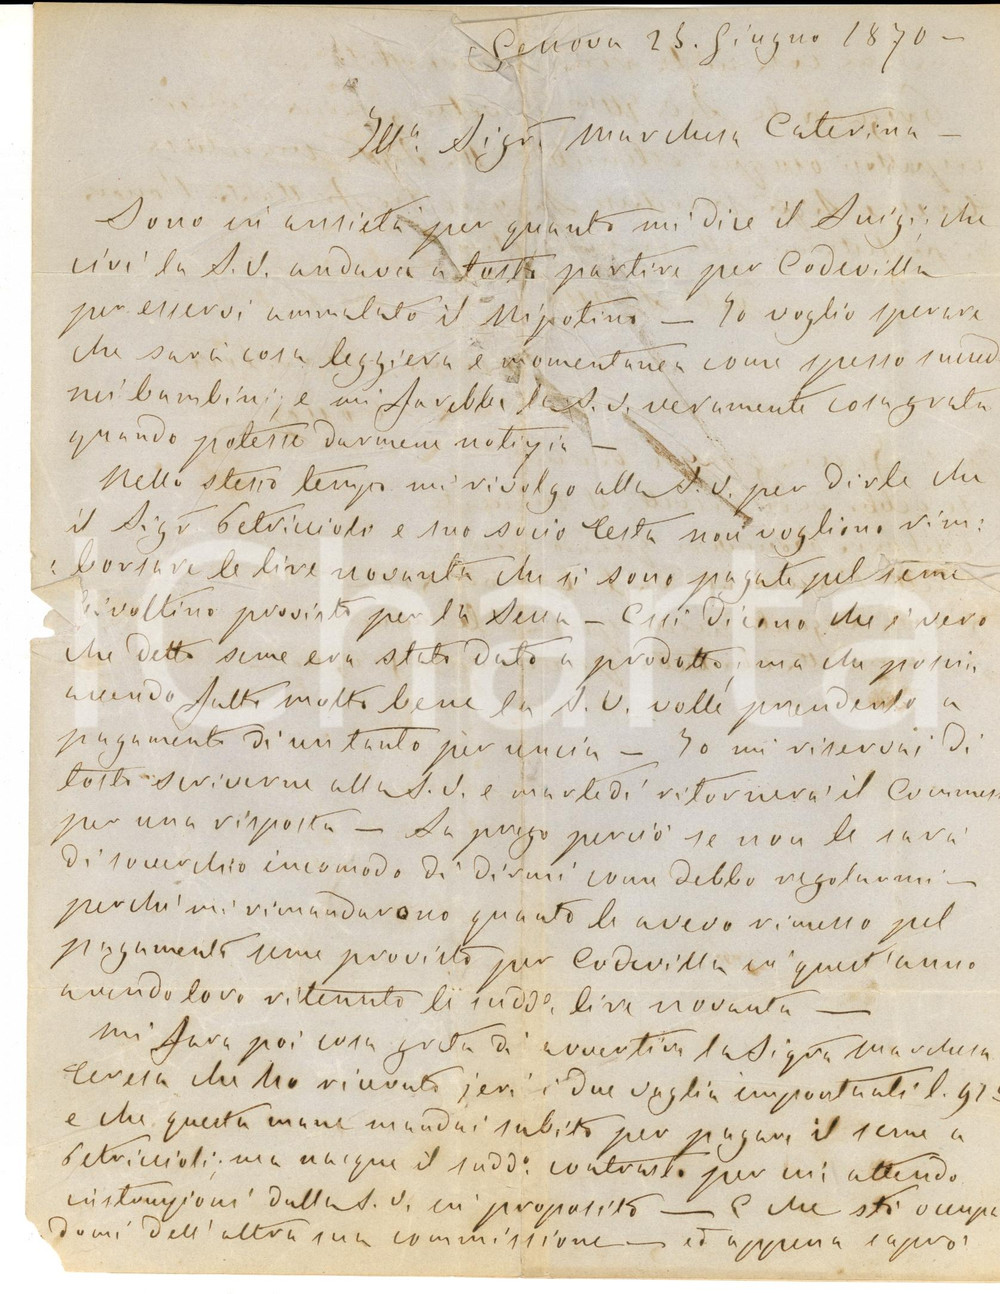 Genova 25. Giugno 1870 —
Ill.ª Sigrª Marchesa Caterina —
Sono in ansietà per quanto mi dice il Luigi, che
ivi la S.V. andava a tosto partire per Codevilla
per esservi ammalato il Nipotino — Io voglio sperare
che sarà cosa leggiera e momentanea come spesso succed
nei bambini; e mi farebbe la S.V. veramente cosa grata
quando potesse darmene notizia —
Nello stesso tempo mi rivolgo alla S.V. per dirle che
il Sigr Petriccioli e suo socio Testa non vogliono rim:
borsare le lire novanta che si sono pagate pel seme
Bivoltino provisto per la Serra — Essi dicono che è vero
che detto seme era stato dato a prodotto, ma che poscia
avendo fatto molto bene la S.V. volle prenderlo a
pagamento di un tanto per uncia — Io mi riservai di
tosto scriverne alla S.V. e martedì ritornerà il Commess
per una risposta — La prego perciò se non le sarà
di soverchio incomodo di dirmi come debbo regolarmi —
perchè mi rimandarono quanto le avevo rimesso pel
pagamento seme provisto per Codevilla in quest'anno
avendo loro ritenuto le sudd.e lire novanta —
Mi farà poi cosa grata di avvertire la Sigrª Marchesa
Teresa che ho ricevuto jeri i due vaglia importanti l. 925
e che questa mane mandai subito per pagare il seme a
Petriccioli; ma nacque il sudd.o contrasto per cui attendo
instruzioni dalla S.V. in proposito — E che sto occupa
domi dell'altra sua commissione — ed appena saprò